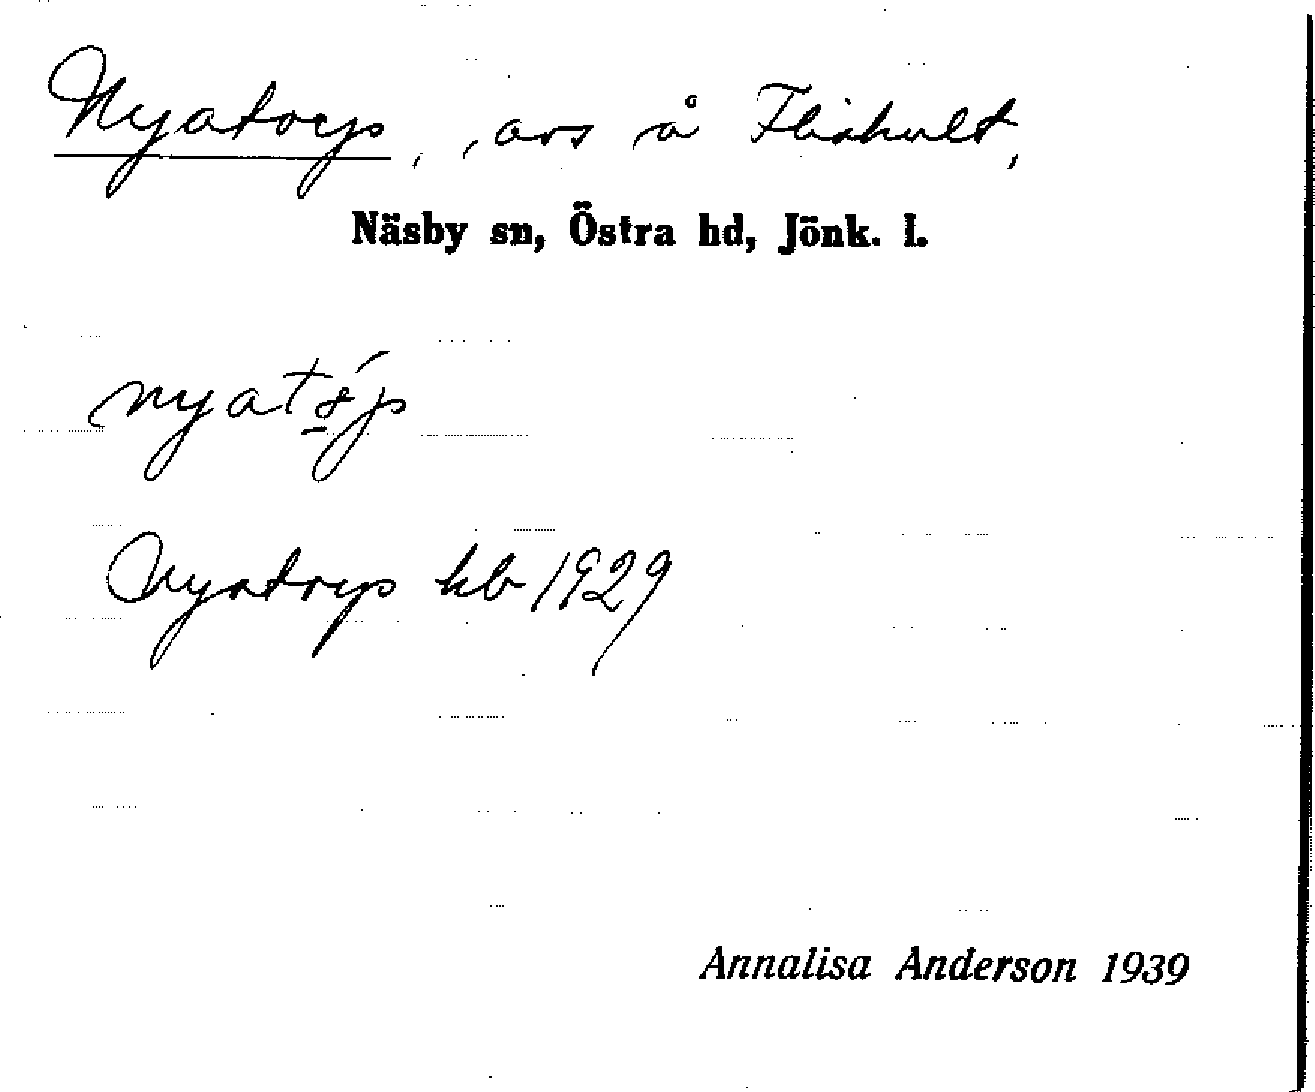 Nyatorp, , avs å Fliskult,
Näsby sn, Östra hd, Jönk. l.
Nyatorp kb 1929
Annalisa Anderson 1939